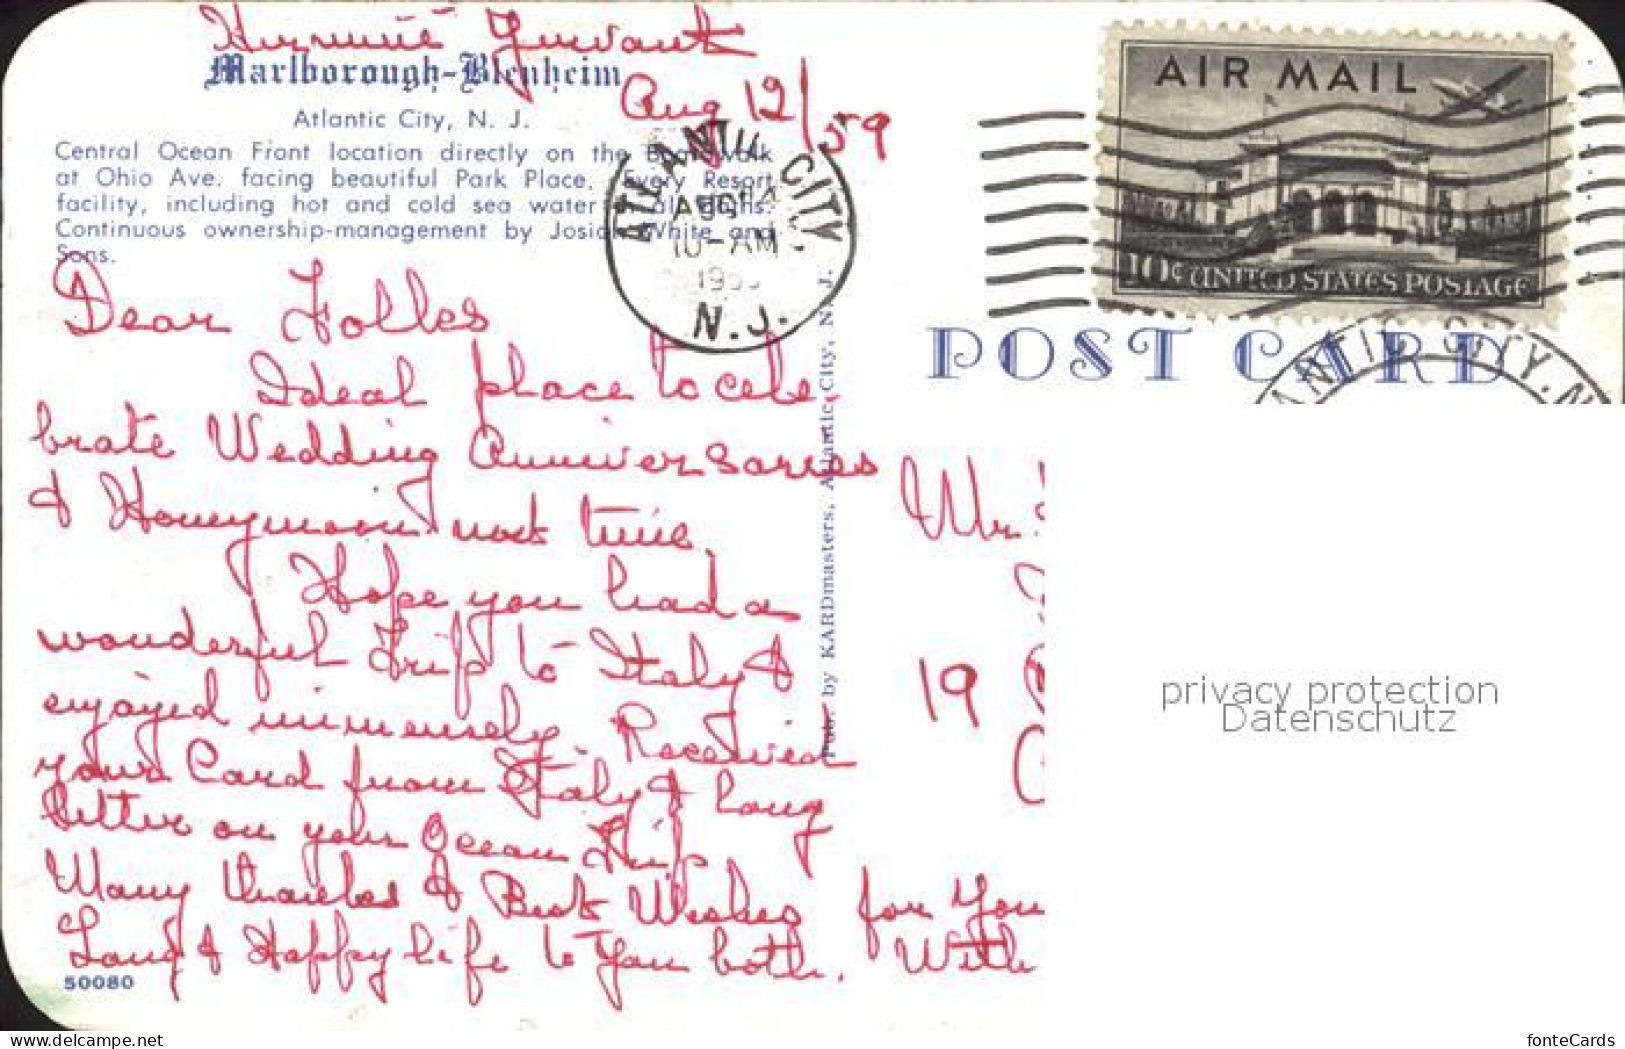 Marlborough-Blenheim
Aug 12/59
Atlantic City, N. J.
Central Ocean Front location directly on the Boardwalk
at Ohio Ave. facing beautiful Park Place. Every Resort
facility, including hot and cold sea water in all baths.
Continuous ownership-management by Josiah White and
Sons.
ATLANTIC CITY
AUG
10-AM
N. J.
AIR MAIL
10¢ UNITED STATES POSTAGE
POST CARD
ANTIC CITY, N
Dear Folles
Ideal place to cele
brate Wedding Anniversaries
& Honeymoon next time.
Hope you had a
wonderful Trip to Italy &
enjoyed immensely. Received
your Card from Italy & Long
letter on your Ocean Trip
Many thanks & Best Wishes for You
Long & Happy life to You both. With
50080
Pub. by KARDmasters, Atlantic City, N. J.
Mr.
19
privacy protection
Datenschutz
Delcampe.net
fonteCards